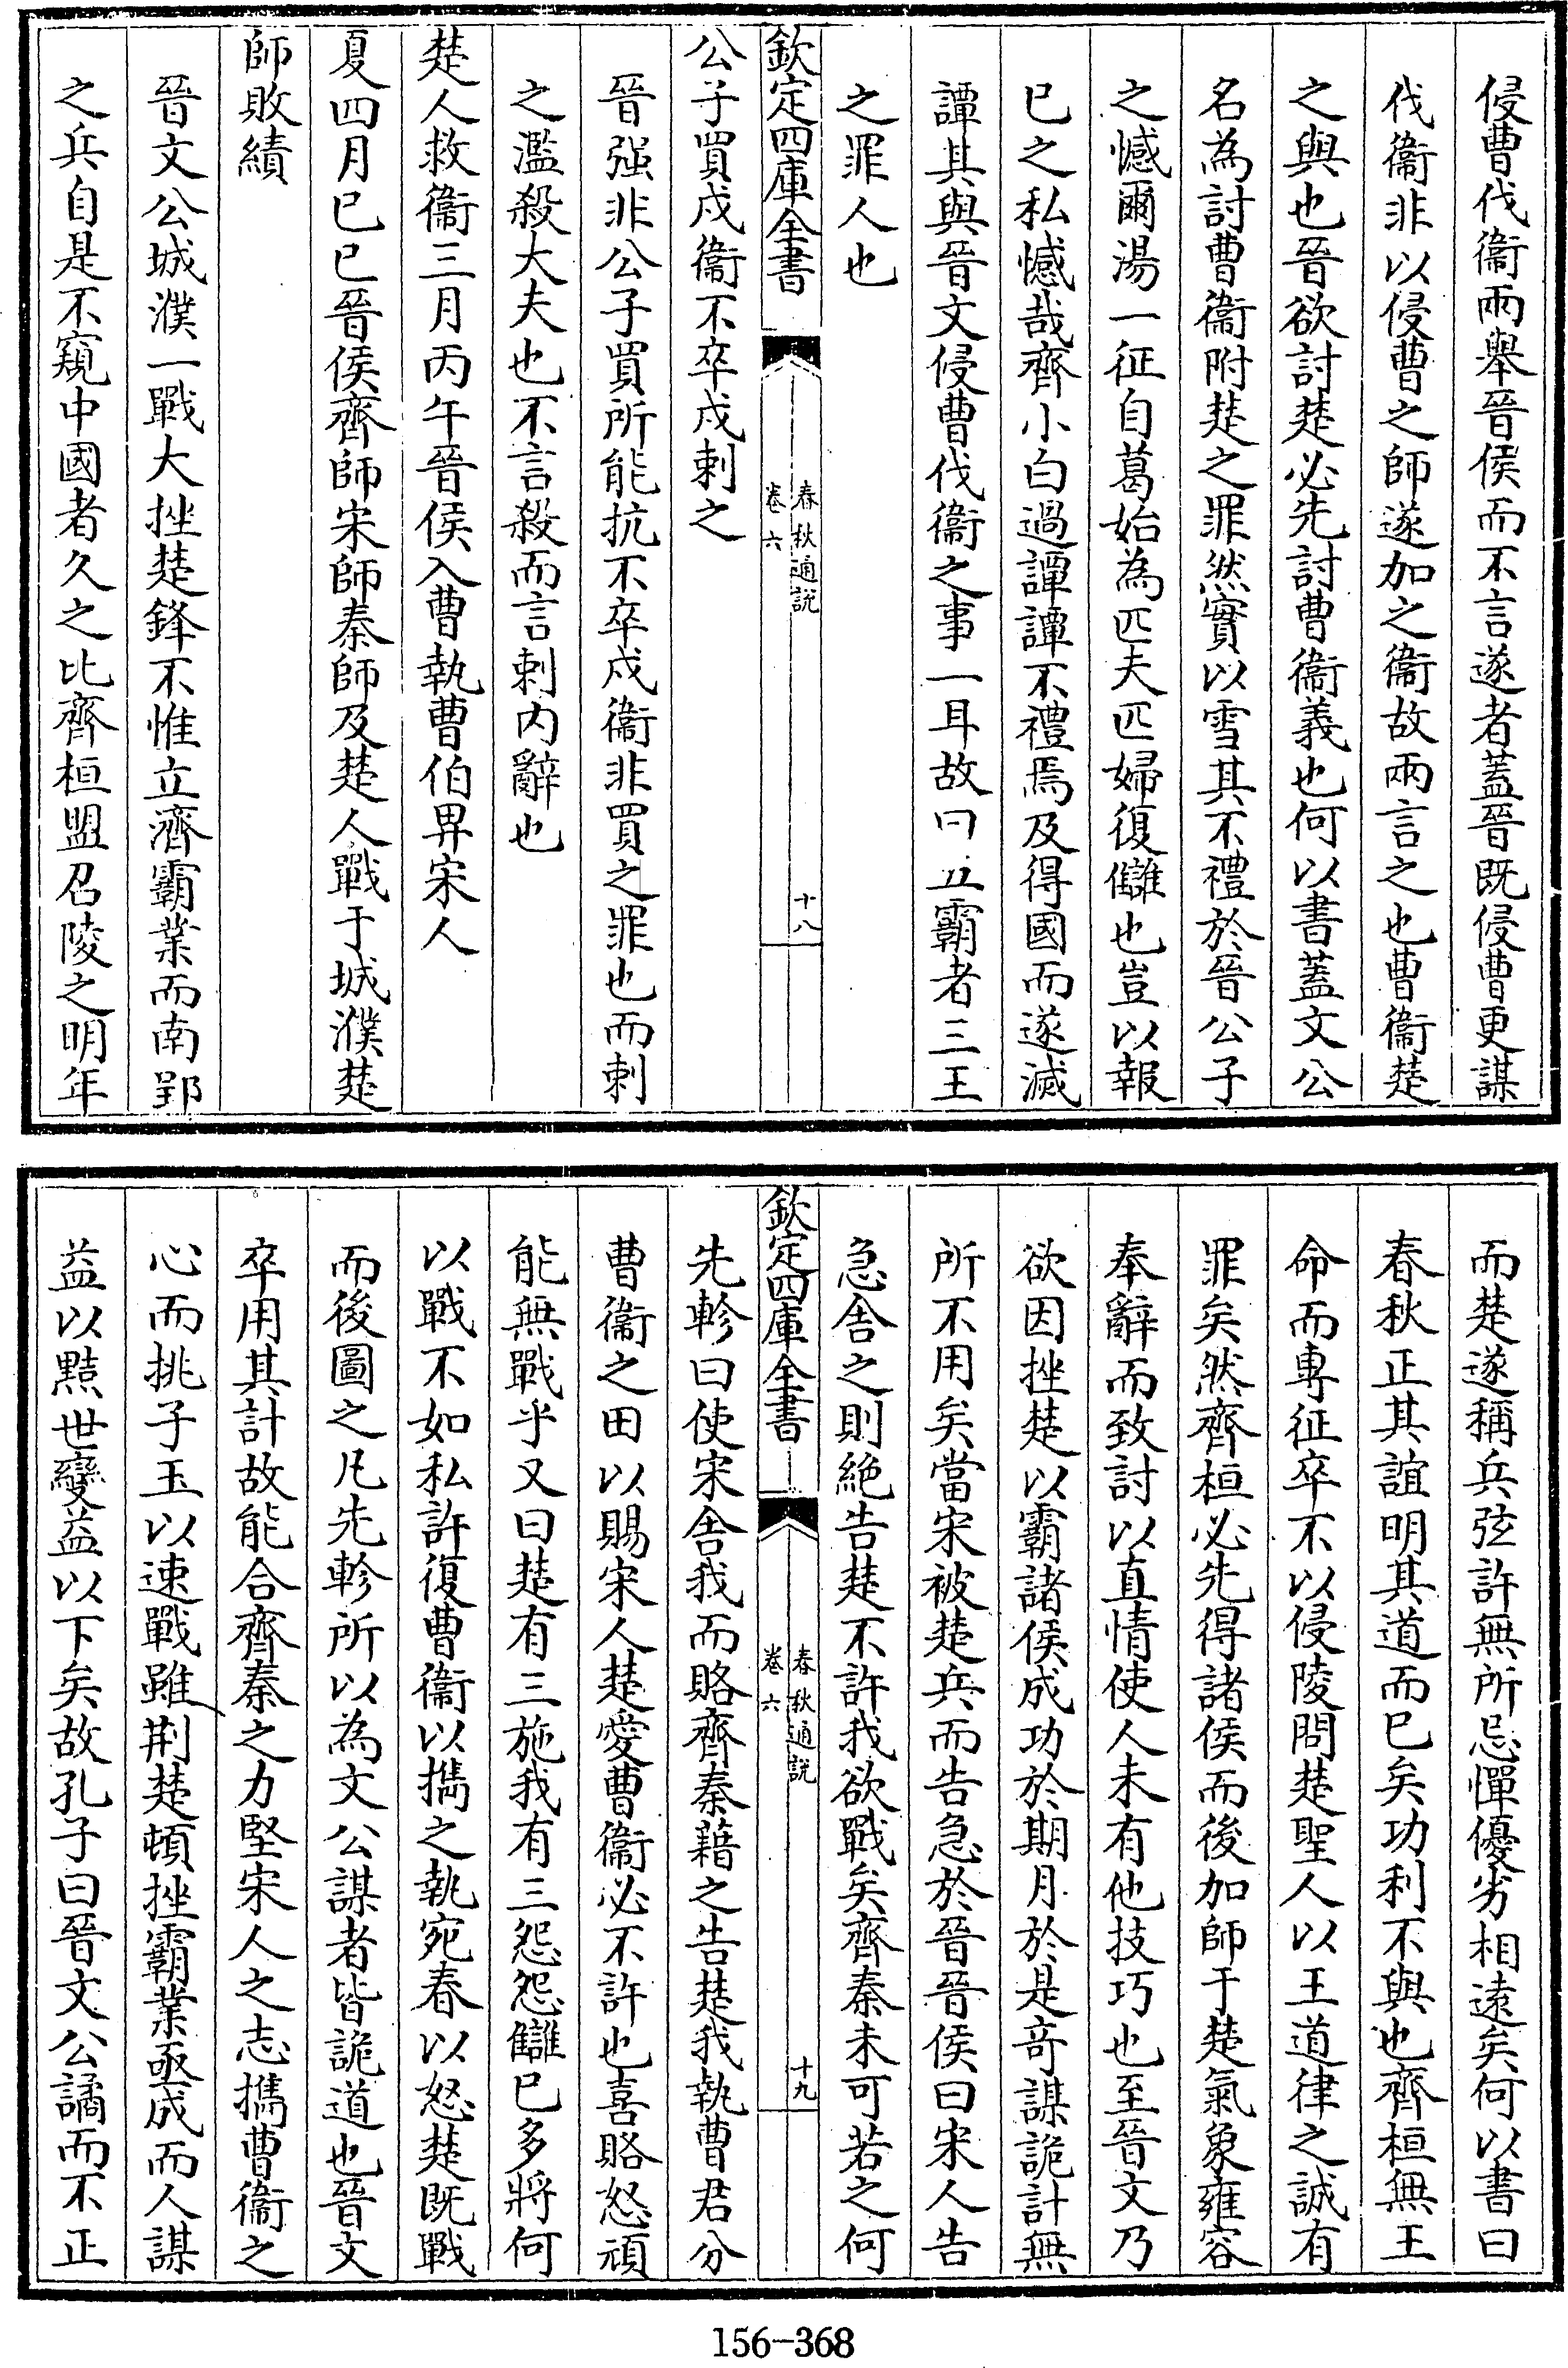 侵曹伐衞兩舉晉侯而不言遂者蓋晉既侵曹更謀
伐衞非以侵曹之師遂加之衞故兩言之也曹衞楚
之與也晉欲討楚必先討曹衞義也何以書蓋文公
名為討曹衞附楚之罪然實以雪其不禮於晉公子
之憾爾湯一征自葛始為匹夫匹婦復讎也豈以報
已之私憾哉齊小白過譚譚不禮焉及得國而遂滅
譚其與晉文侵曹伐衞之事一耳故曰五霸者三王
之罪人也
欽定四庫全書
春秋通說
卷六
十八
公子買戍衞不卒戍刺之
晉强非公子買所能抗不卒戍衞非買之罪也而刺
之濫殺大夫也不言殺而言刺内辭也
楚人救衞三月丙午晉侯入曹執曹伯畀宋人
夏四月已巳晉侯齊師宋師秦師及楚人戰于城濮楚
師敗績
晉文公城濮一戰大挫楚鋒不惟立濟霸業而南郢
之兵自是不窺中國者久之比齊桓盟召陵之明年
而楚遂稱兵弦許無所忌憚優劣相遠矣何以書曰
春秋正其誼明其道而已矣功利不與也齊桓無王
命而專征卒不以侵陵問楚聖人以王道律之誠有
罪矣然齊桓必先得諸侯而後加師于楚氣象雍容
奉辭而致討以直情使人未有他技巧也至晉文乃
欲因挫楚以霸諸侯成功於期月於是竒謀詭計無
所不用矣當宋被楚兵而告急於晉晉侯曰宋人告
急舍之則絶告楚不許我欲戰矣齊秦未可若之何
欽定四庫全書
春秋通說
卷六
十九
先軫曰使宋舍我而賂齊秦藉之告楚我執曹君分
曹衞之田以賜宋人楚愛曹衞必不許也喜賂怒頑
能無戰乎又曰楚有三施我有三怨怨讎已多將何
以戰不如私許復曹衞以擕之執宛春以怒楚既戰
而後圖之凡先軫所以為文公謀者皆詭道也晉文
卒用其計故能合齊秦之力堅宋人之志擕曹衞之
心而挑子玉以速戰雖荆楚頓挫霸業亟成而人謀
益以黠世變益以下矣故孔子曰晉文公譎而不正
156-368